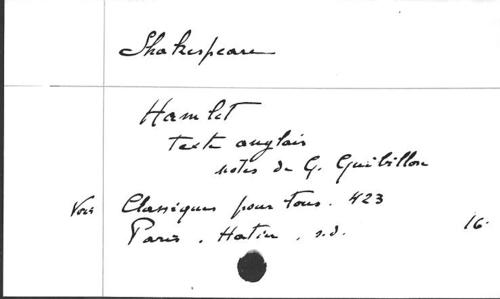 Shakespeare
Hamlet
texte anglais
notes de G. Guibillon
Voir Classiques pour tous. 423
Paris. Hatier. s.d. 16.